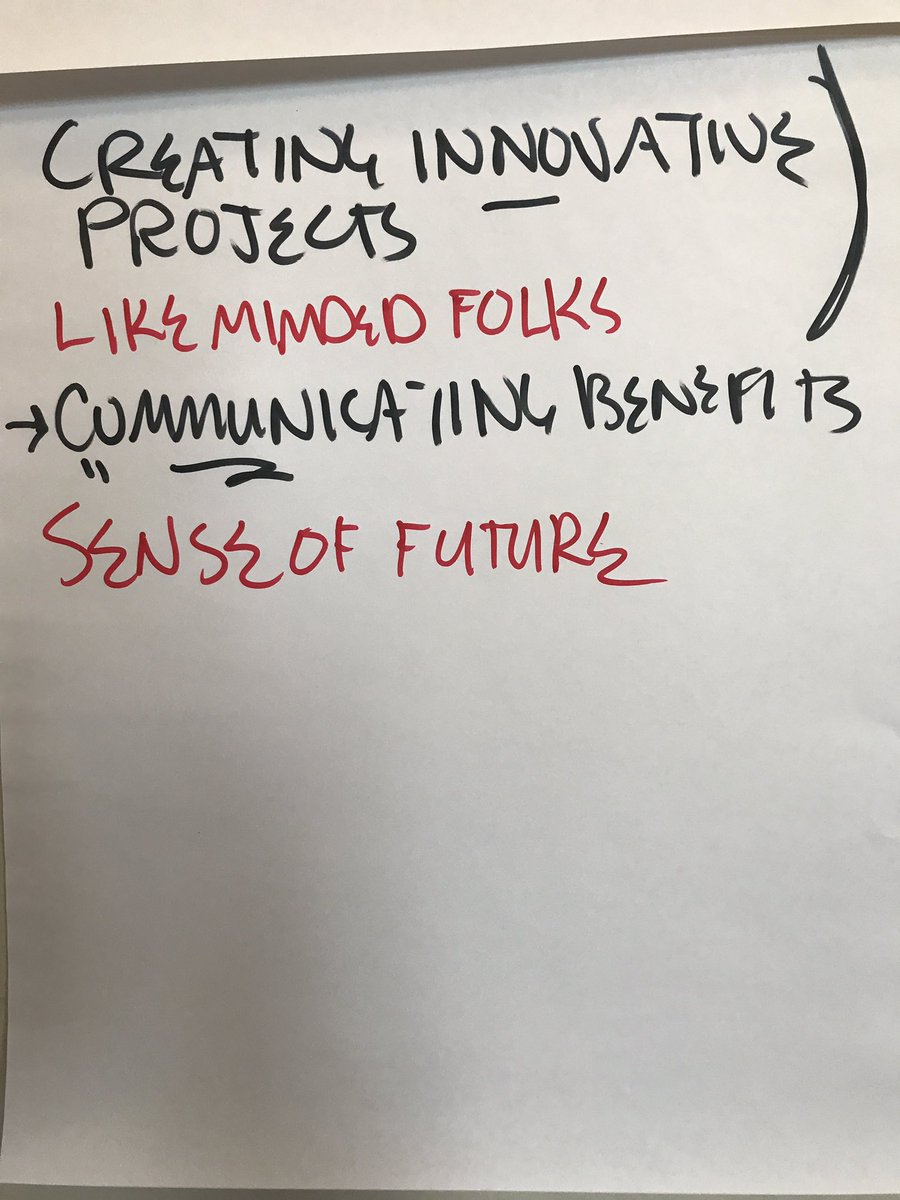 CREATING INNOVATIVE
PROJECTS
LIKE MINDED FOLKS
→ COMMUNICATING BENEFITS
SENSE OF FUTURE